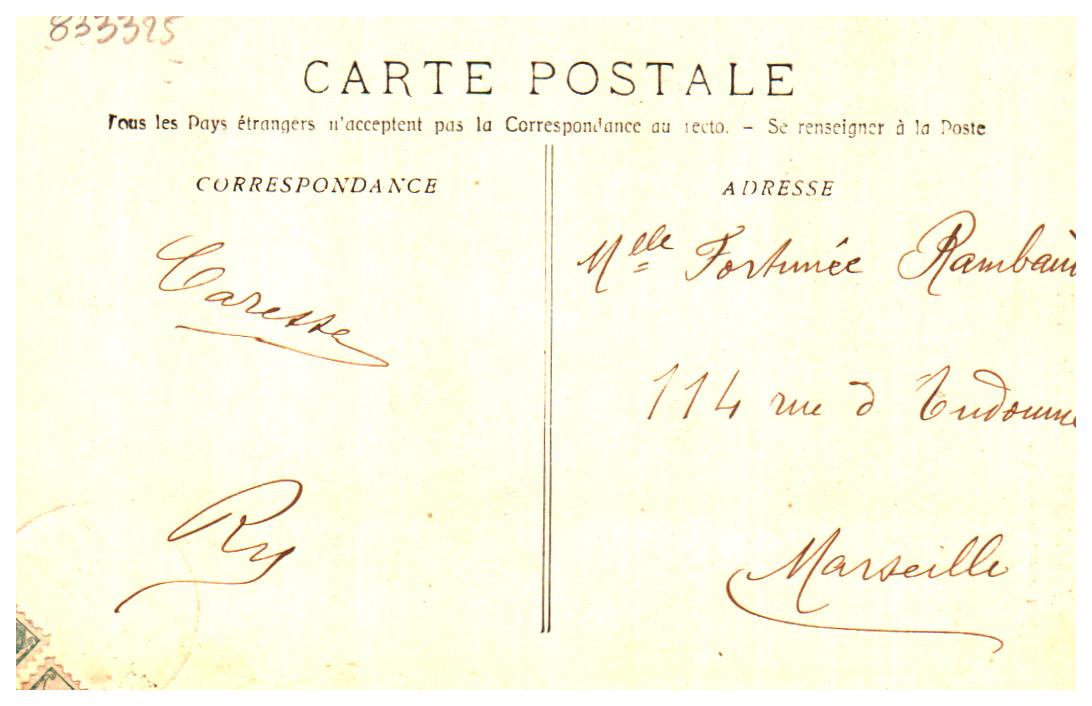 833325
CARTE POSTALE
Tous les Pays étrangers n'acceptent pas la Correspondance au recto. – Se renseigner à la Poste
CORRESPONDANCE
Caresse
Ry
ADRESSE
Mlle Fortunée Rambau
114 rue d Endoume
Marseille